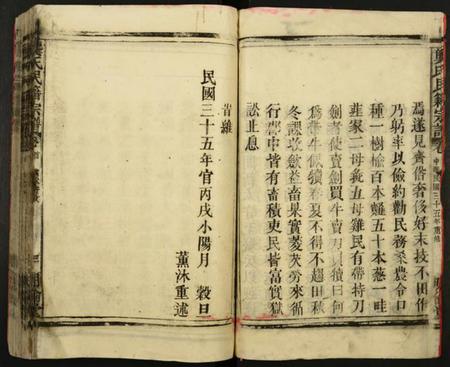 龔氏民籍宗譜卷
中華民國三十五年重修
焉遂見齊俗奢侈好末技不田作
乃躬率以儉約勸民務農桑令口
種一樹榆百本薤五十本葱一畦
韭家二母彘五母雞民有帶持刀
劍者使賣劍買牛賣刀買犢曰何
為帶牛佩犢春夏不得不趨田秋
冬課收斂益畜果實菱芡勞來循
行郡中皆有畜積吏民皆富實獄
訟止息
昔雞
民國三十五年官丙戌小陽月 穀旦
薰沐重述
氏民籍宗譜